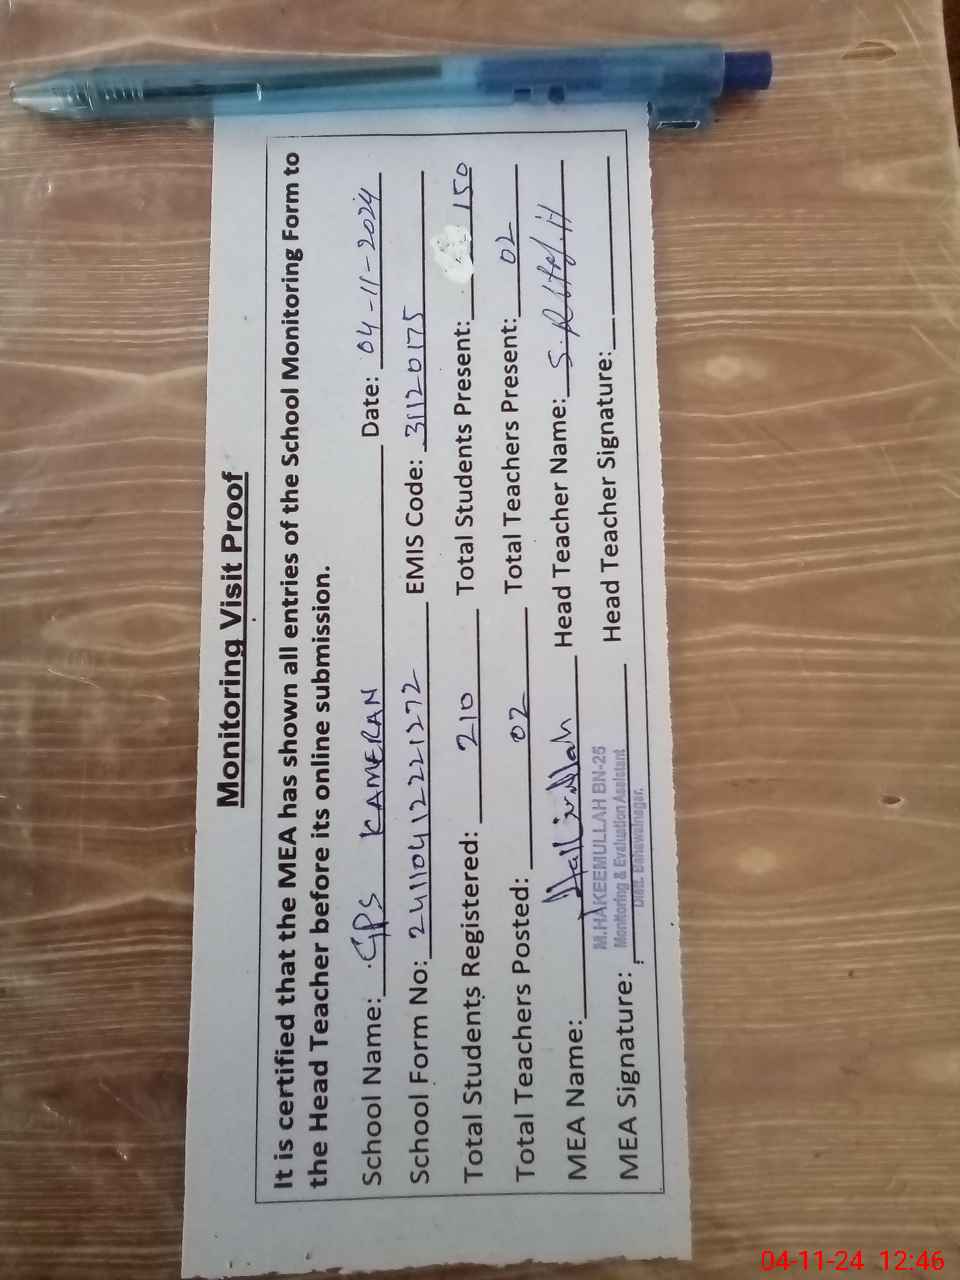 Monitoring Visit Proof
It is certified that the MEA has shown all entries of the School Monitoring Form to
the Head Teacher before its online submission.
School Name: GPS KAMERAN Date: 04-11-2024
School Form No: 24110412221272 EMIS Code: 31120175
Total Students Registered: 210 Total Students Present: 150
Total Teachers Posted: 02 Total Teachers Present: 02
MEA Name: Head Teacher Name: S.
M.HAKEEMULLAH BN-25
Monitoring & Evaluation Assistant
Distt. Bahawalnagar.
MEA Signature: Head Teacher Signature:
04-11-24 12:46